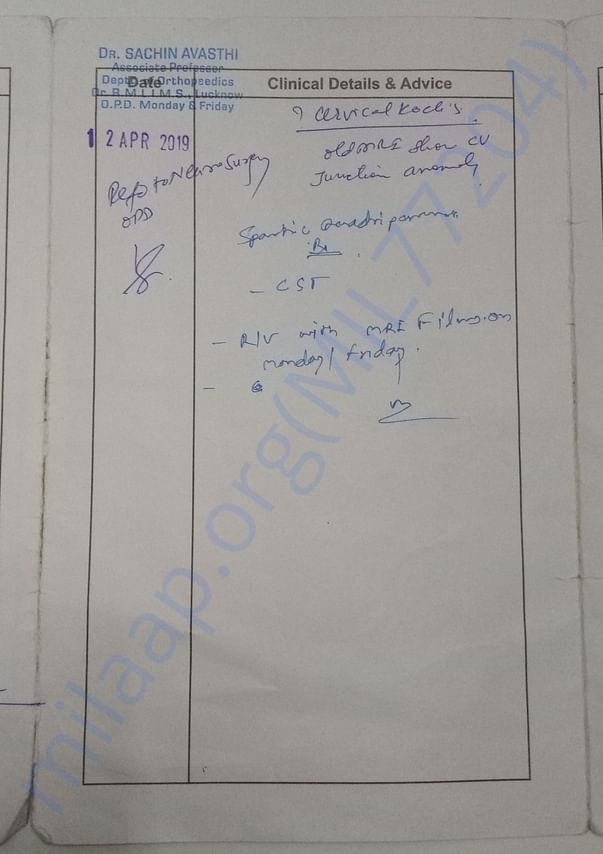 DR. SACHIN AVASTHI
Associate Professor
Deptt. of Orthopaedics
Dr. R.M.L.I.M.S., Lucknow
O.P.D. Monday & Friday
Date
Clinical Details & Advice
? Cervical Koch's
12 APR 2019
old MRI show CV
Junction anomaly
Refer to Neuro Surgery
OPD
Spastic Quadriparesis
- CST
- R/V with MRI Films on
Monday / Friday.
milaap.org(MIL77204)